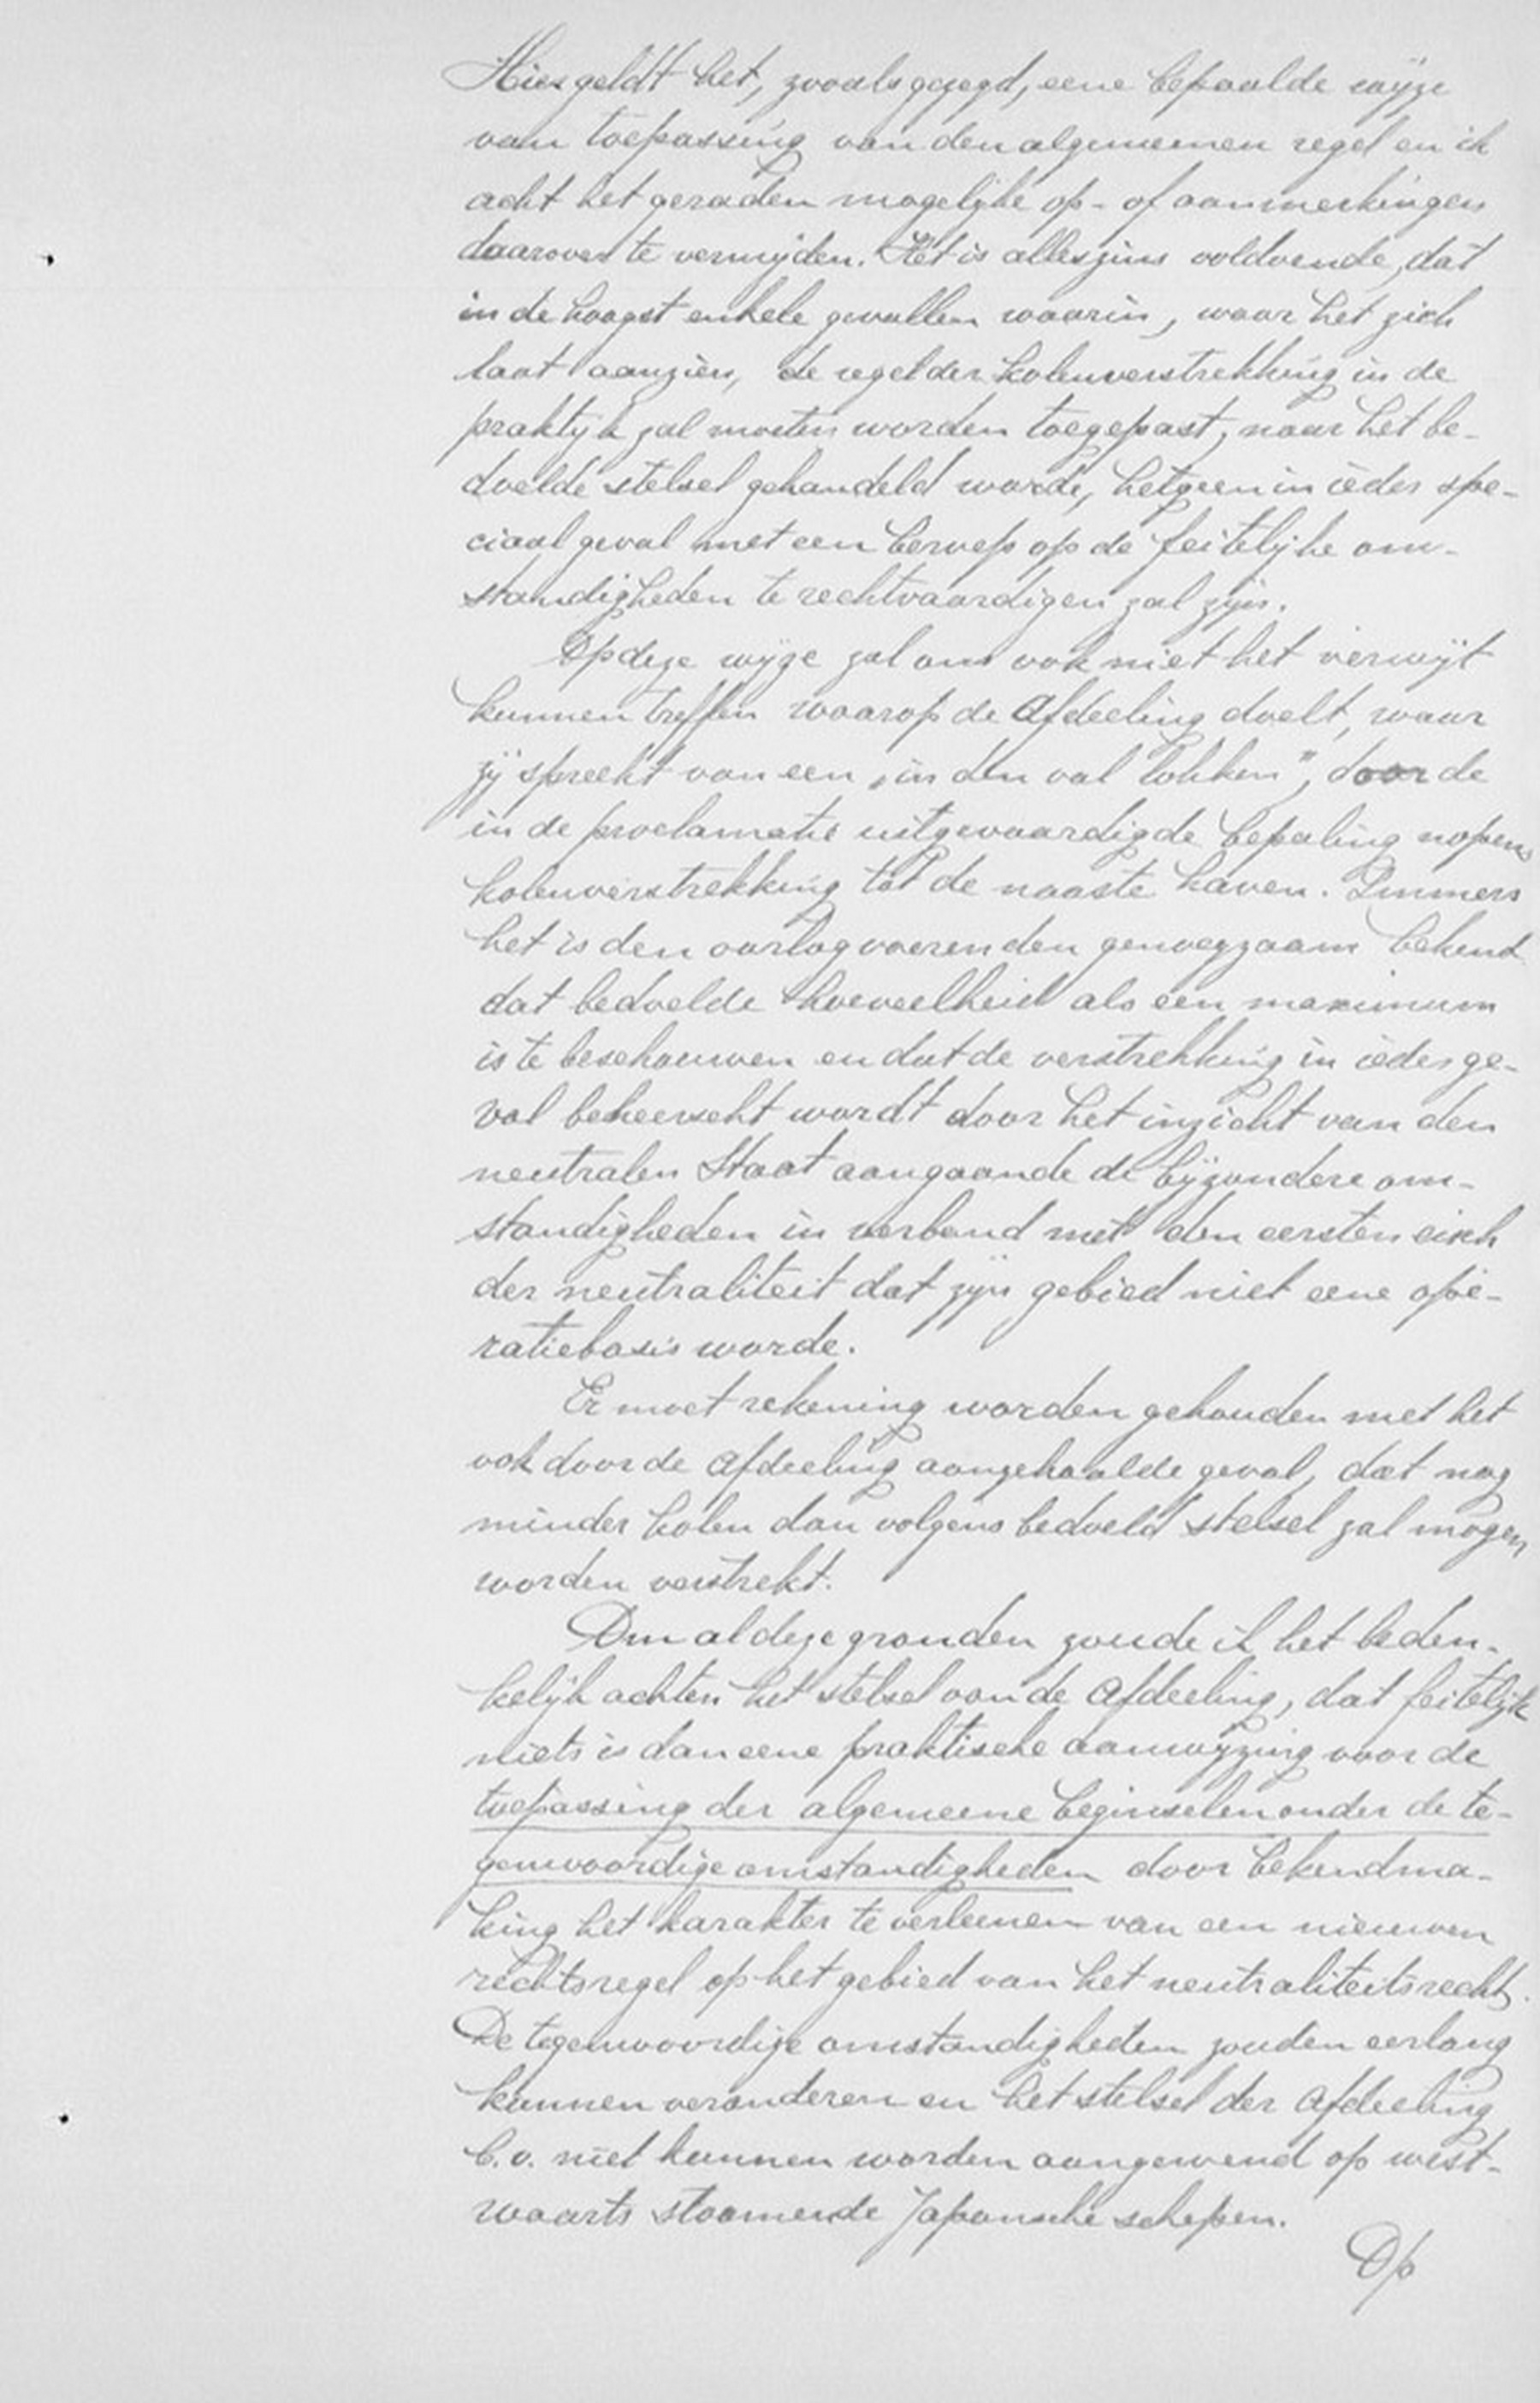 Hier geldt het, zooals gezegd, eene bepaalde wijze
van toepassing van den algemeenen regel en ik
acht het geraden mogelijke op- of aanmerkingen
daarover te vermijden. Het is alleszins voldoende, dat
in de hoogst enkele gevallen waarin, waar het zich
laat aanzien, de regel der kolenverstrekking in de
praktijk zal moeten worden toegepast, naar het be-
doelde stelsel gehandeld worde, hetgeen in ieder spe-
ciaal geval met een beroep op de feitelijke om-
standigheden te rechtvaardigen zal zijn.
Op deze wijze zal ons ook niet het verwijt
kunnen treffen waarop de Afdeeling doelt, waar
zij spreekt van een „in den val lokken", door de
in de proclamatie uitgevaardigde bepaling nopens
kolenverstrekking tot de naaste haven. Immers
het is den oorlogvoerenden genoegzaam bekend
dat bedoelde hoeveelheid als een maximum
is te beschouwen en dat de verstrekking in ieder ge-
val beheerscht wordt door het inzicht van den
neutralen Staat aangaande de bijzondere om-
standigheden in verband met den eersten eisch
der neutraliteit dat zijn gebied niet eene ope-
ratiebasis worde.
Er moet rekening worden gehouden met het
ook door de Afdeeling aangehaalde geval, dat nog
minder kolen dan volgens bedoeld stelsel zal mogen
worden verstrekt.
Om al deze gronden zoude ik het beden-
kelijk achten het stelsel van de Afdeeling, dat feitelijk
niets is dan eene praktische aanwijzing voor de
toepassing der algemeene beginselen onder de te-
genwoordige omstandigheden door bekendma-
king het karakter te verleenen van een nieuwen
rechtsregel op het gebied van het neutraliteitsrecht.
De tegenwoordige omstandigheden zouden eerlang
kunnen veranderen en het stelsel der Afdeeling
b.v. niet kunnen worden aangewend op west-
waarts stoomende Japansche schepen.
Op